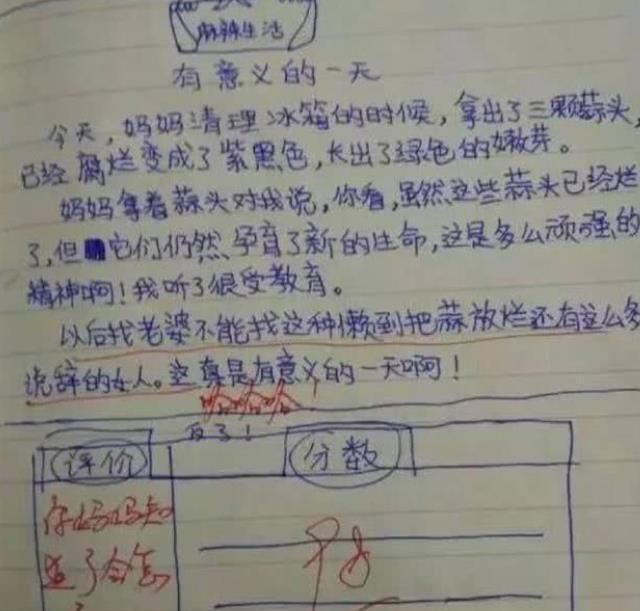 麻辣生活
有意义的一天
今天,妈妈清理冰箱的时候,拿出了三颗蒜头,
已经腐烂变成了紫黑色,长出了绿色的嫩芽。
妈妈拿着蒜头对我说,你看,虽然这些蒜头已经烂
了,但它们仍然孕育了新的生命,这是多么顽强的
精神啊!我听了很受教育。
以后找老婆不能找这种懒到把蒜放烂还有这么多
说辞的女人。这真是有意义的一天啊!
哈哈哈哈
评价
分数
你妈妈知
道了会怎